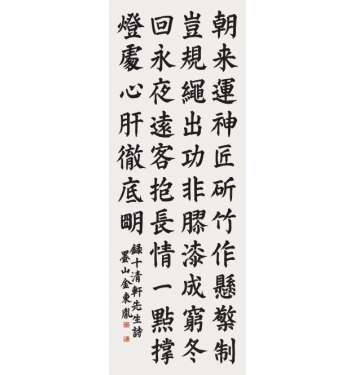 朝来運神匠斫竹作懸檠制
豈規繩出功非膠漆成窮冬
回永夜遠客抱長情一點撑
燈處心肝徹底明
錄十清軒先生詩
墨山金東胤